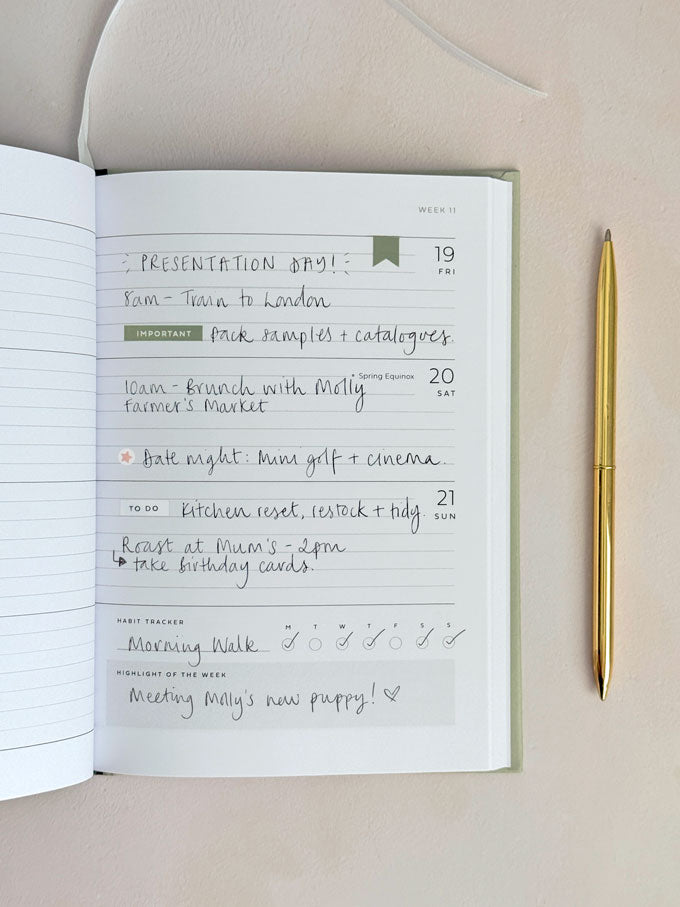 WEEK 11
PRESENTATION DAY!
19
FRI
8am - Train to London
IMPORTANT Pack samples + catalogues.
* Spring Equinox
20
SAT
10am - Brunch with Molly
Farmer's Market
Date night: Mini golf + cinema.
21
SUN
TO DO Kitchen reset, restock + tidy.
Roast at Mum's - 2pm
↳ take Birthday cards.
HABIT TRACKER
M T W T F S S
Morning Walk
HIGHLIGHT OF THE WEEK
Meeting Molly's new puppy! ♡